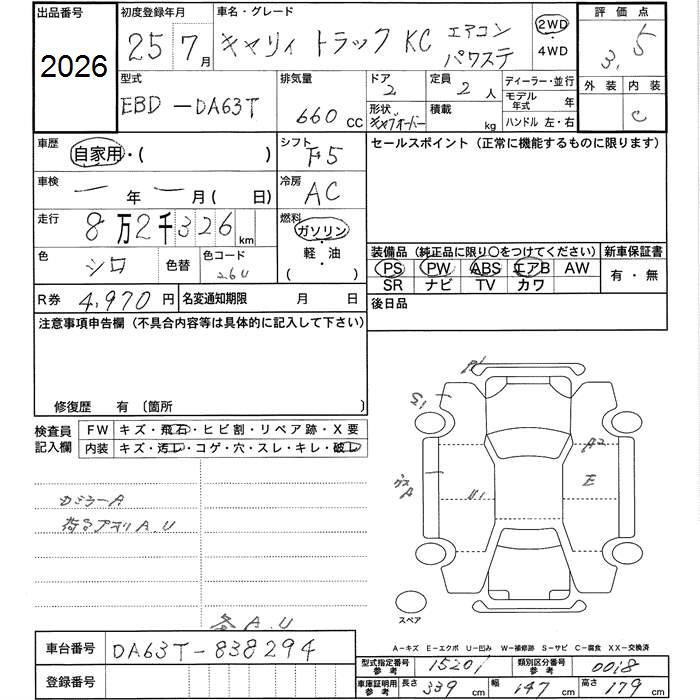 出品番号 初度登録年月 車名・グレード 評価点
2026 25年7月 キャリィ トラック KC エアコン パワステ 2WD ・ 4WD 3.5
外装 内装
C
型式 排気量 ドア 定員 ディーラー・並行
EBD-DA63T 660 CC 2 2人 モデル年式 年
形状 積載 kg ハンドル 左・右
車歴 シフト セールスポイント (正常に機能するものに限ります)
自家用・( ) F5
車検 冷房
ー年ー月(日) AC
走行 燃料
8万2千326km ガソリン・軽・油 ( )
色 色替 色コード
シロ 26U
装備品 (純正品に限り○をつけてください) 新車保証書
PS PW ABS エアB AW 有・無
SR ナビ TV カワ
R券 4,970円 名変通知期限 月 日 後日品
注意事項申告欄 (不具合内容等は具体的に記入して下さい)
修復歴 有 〔箇所
検査員記入欄 FW キズ・飛石・ヒビ割・リペア跡・X要
内装 キズ・汚レ・コゲ・穴・スレ・キレ・破レ
A1
S1
A2
E
U1
A
スペア
A.U
A.U
A-キズ E-エクボ U-凹み W-補修跡 S-サビ C-腐食 XX-交換済
車台番号 DA63T-838294
登録番号
型式指定番号参考 15201 類別区分番号参考 0018
車庫証明用参考 長さ 339cm 幅 147cm 高さ 179cm